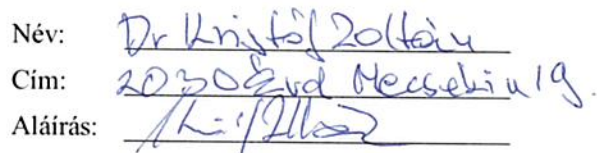 Név: Dr Kristóf Zoltán
Cím: 2030 Érd Mecseki u 19.
Aláírás: